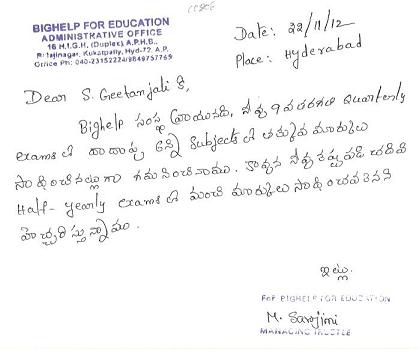 BIGHELP FOR EDUCATION
ADMINISTRATIVE OFFICE
16 H.I.G.H. (Duplex) A.P.H.B.
Rajajinagar, Kukatpally, Hyd-72. A.P.
Office Ph: 040-23152224/9849757769
Date: 22/11/12
Place: Hyderabad
Dear S. Geetanjali కి,
Bighelp సంస్థ వ్రాయునది, నీవు 9వ తరగతి Quarterly
exams లో దాదాపు అన్ని Subjects లో తక్కువ మార్కులు
సాధించినట్లుగా గమనించినాము. కావున నీవు కష్టపడి చదివి
Half-yearly exams లో మంచి మార్కులు సాధించవలెనని
హెచ్చరిస్తున్నాము.
ఇట్లు.
For BIGHELP FOR EDUCATION
M. Sarojini
MANAGING TRUSTEE